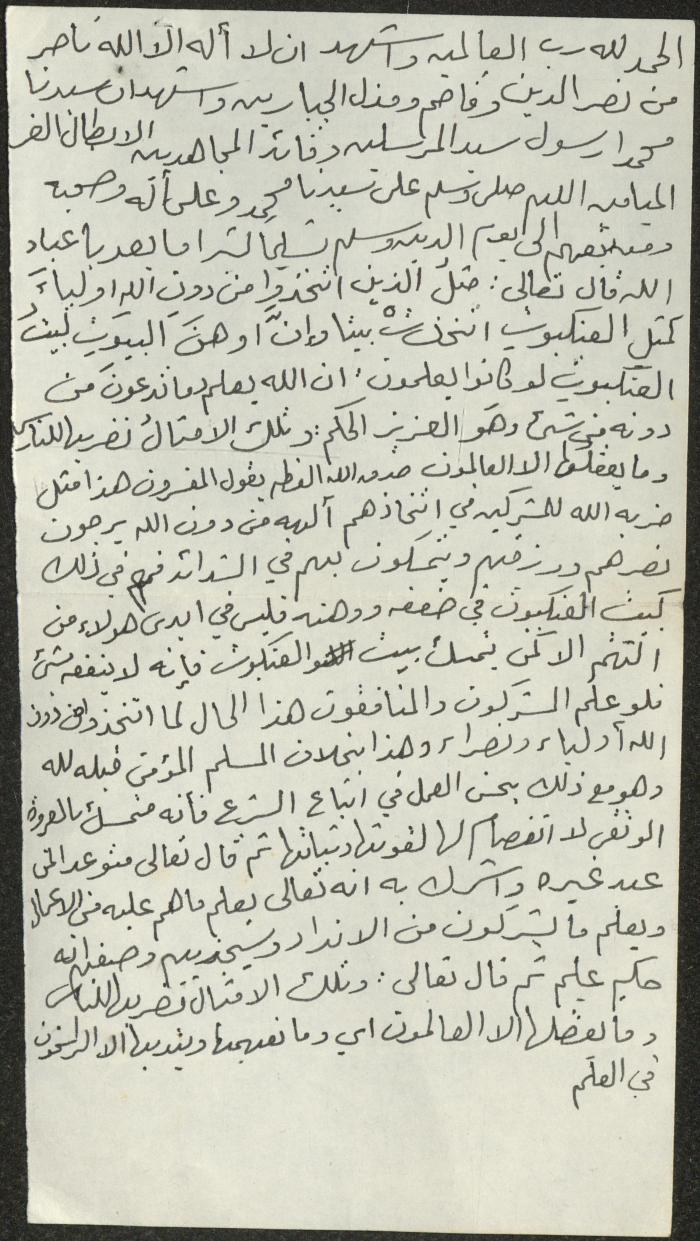 الحمد لله رب العالمين واشهد ان لا أله الا الله ناصر
من نصر الدين وقاصم ومذل الجبارين واشهد ان سيدنا
محمدا رسول سيد المرسلين وقائد المجاهدين الابطال الغر
الميامين اللهم صلي وسلم على سيدنا محمد وعلى أله وصحبه
ومن تبعهم الى يوم الدين وسلم تسليماً كثيرا اما بعد يا عباد
الله قال تعالى : مثلُ الذين اتخذوا من دونِ الله اولياءَ
كمثلِ العنكبوتِ اتخذتْ بيتا وإنَّ اوهنَ البيوتِ لبيتُ
العنكبوتِ لو كانوا يعلمون . ان الله يعلم ما تدعونَ من
دونه من شئ وهو العزيز الحكيم : وتلك الامثالُ نضربها للناس
وما يعقلها الا العالمون صدق الله العظيم يقول المفسرون هذا مثل
ضربه الله للمشركين في اتخاذهم ألهه من دون الله يرجون
نصرهم ورزقهم ويتمسكون بهم في الشدائد فهم في ذلك
كبيت العنكبوت في ضعفه ووهنه فليس في ايدي هولاء من
الهتهم الا كمن يتمسك ببيت العنكبوت فإنه لا ينفعه شئ
فلو علم المشركون والمنافقون هذا الحال لما اتخذوا من دون
الله أولياء ونصراء وهذا بخلاف المسلم المؤمن قبله لله
وهو مع ذلك يحسن العمل في اتباع الشرع فأنه متمسك بالعروة
الوثقى لا انفصام لها لقوتها وثباتها ثم قال تعالى متوعد المن
عبد غيره واشرك به انه تعالى يعلم ما هم عليه من الاعمال
ويعلم ما يشركون من الانداد وسيجزيهم وصفهم انه
حكيم عليم ثم قال تعالى : وتلك الامثال نضربها للناس
وما يعقلها الا العالمون اي وما يفهمها ويتدبرها الا الراسخون
في العلم